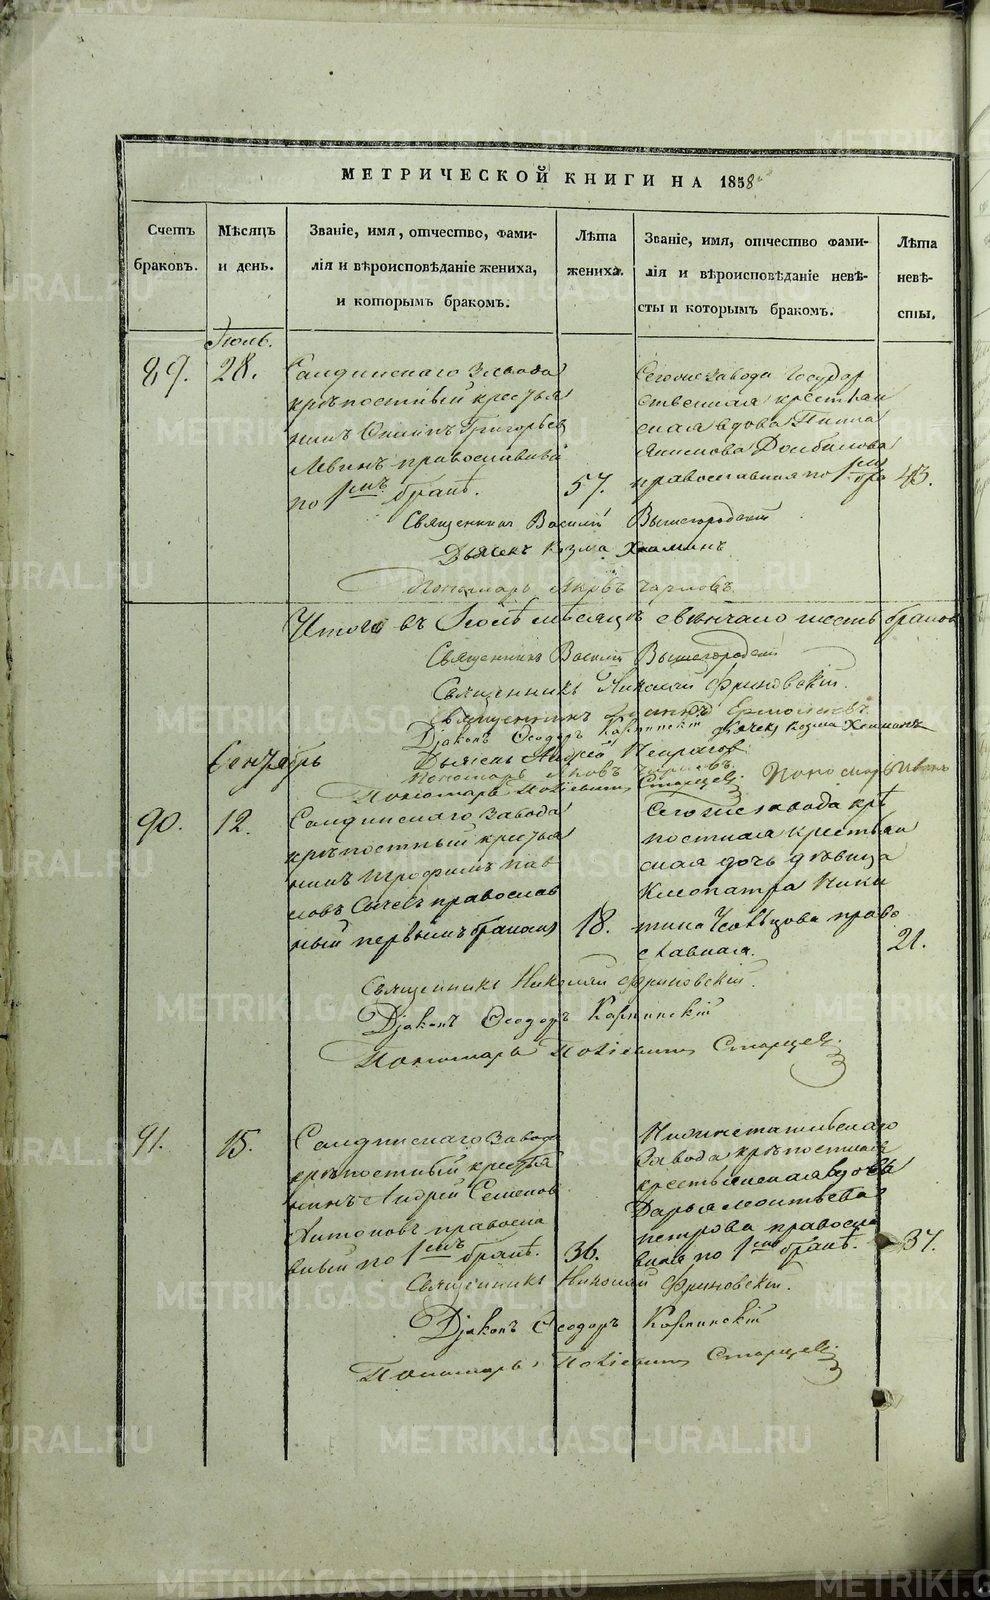 МЕТРИЧЕСКОЙ КНИГИ НА 1858
Счетъ браковъ.
Мѣсяцъ и день.
Званіе, имя, отчество, фами-
лія и вѣроисповѣданіе жениха,
и которымъ бракомъ.
Лѣта жениха.
Званіе, имя, отчество фами-
лія и вѣроисповѣданіе невѣ-
сты и которымъ бракомъ.
Лѣта невѣ-
сты.
Іюль.
89.
28.
Салдинскаго завода
крѣпостный крестья
нинъ Григорьев
Левинъ православный
по 1мъ бракѣ.
57.
Сегоже завода государ
ственная крестьян
ская вдова
Якимова Долбилова
православная по 1мъ бра
43.
Священникъ Василій Вышегородскій
Дьячекъ Козма Хламинъ
Пономарь Яковъ
Итого въ Іюлѣ мѣсяцѣ свѣнчано шесть браков
Священникъ Василій Вышегородскій
Священникъ Николай Фриновскій.
Священникъ
Діаконъ Ѳеодоръ Карпинскій Дьячекъ Козма Хламинъ
Дьячекъ Андрей
Пономарь Яковъ
Пономарь Старцев Пономарь Иванъ
Сентябрь
90.
12.
Салдинскаго завода
крѣпостный крестья
нинъ Трофимъ Пав
ловъ православ
ный первымъ бракомъ
18.
Сегоже завода крѣ
постная крестьян
ская дочь дѣвица
Клеопатра Ники
тина право
славная.
21.
Священникъ Николай Фриновскій.
Діаконъ Ѳеодоръ Карпинскій
Пономарь Старцев.
91.
15.
Салдинскаго завода
крѣпостный крестья
нинъ Андрей Семенов
Антоновъ правосла
вный по 1мъ бракѣ.
36.
Нижнетагильскаго
завода крѣпостная
крестьянская вдова
Дарья Леонтьева
Петрова правосла
вная по 1мъ бракѣ.
37.
Священникъ Николай Фриновскій.
Діаконъ Ѳеодоръ Карпинскій
Пономарь Старцев.
METRIKI.GASO-URAL.RU